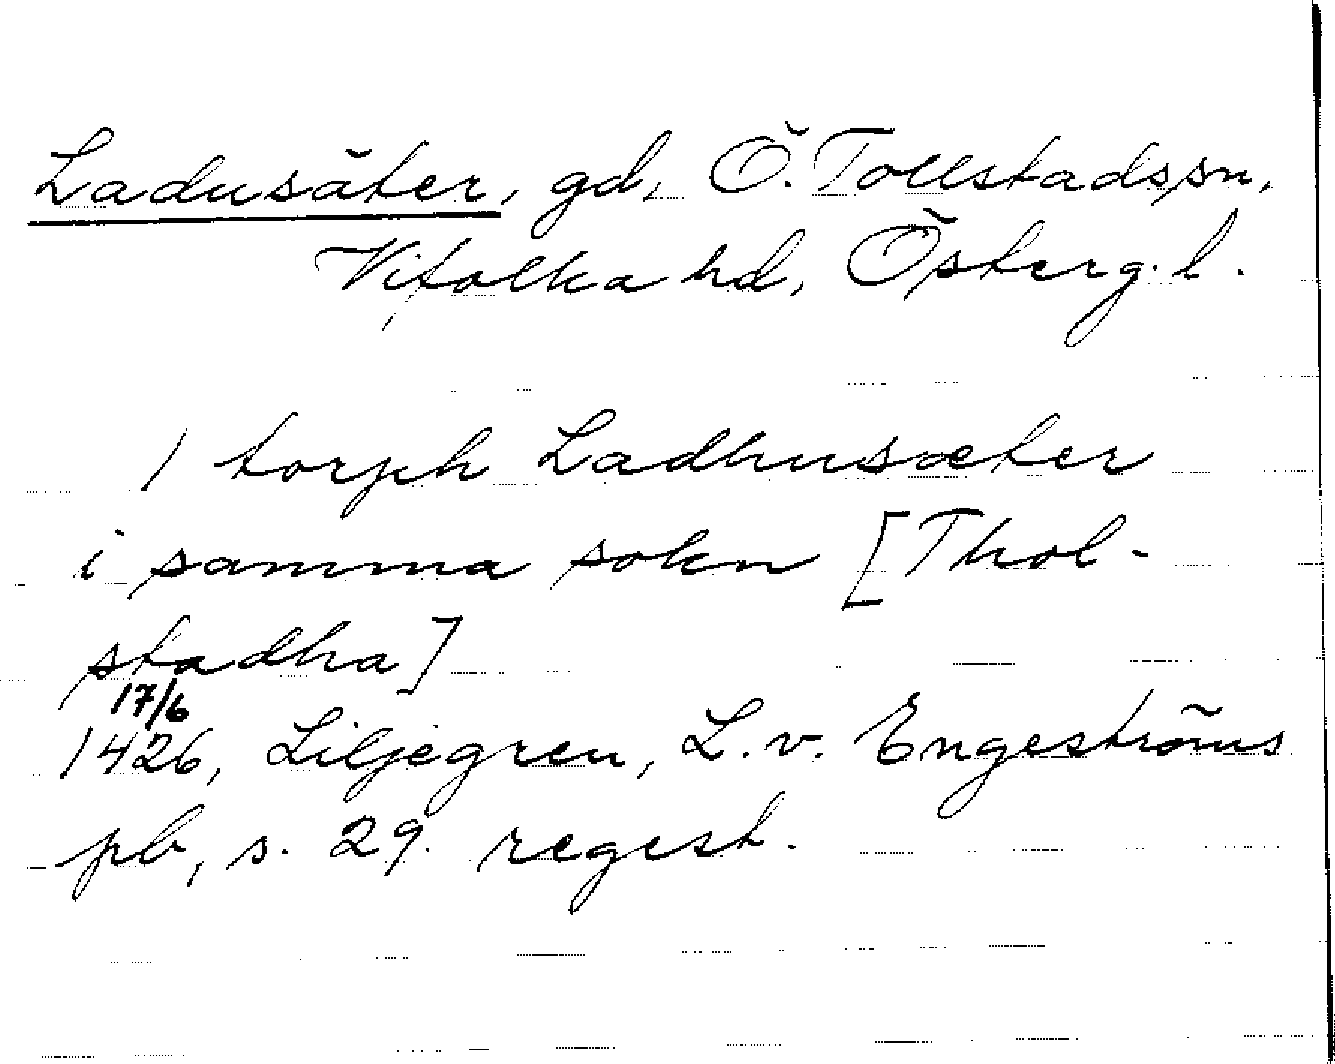 Ladusäter, gd, Ö. Tollstadssn,
Vifolka hd, Österg. l.
1 torph Ladhusæter
i samma sokn [Thol-
stadha]
17/6
1426, Liljegren, L. v. Engeströms
pb, s. 29. regest.